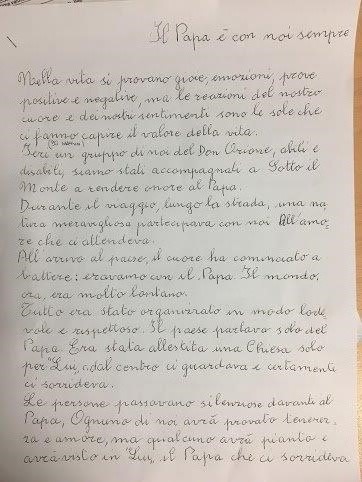 Il Papa è con noi sempre
Nella vita si provano gioie, emozioni, prove
positive e negative, ma le reazioni del nostro
cuore e dei nostri sentimenti sono le sole che
ci fanno capire il valore della vita.
Ieri un gruppo di noi del Don Orione, abili e
disabili, siamo stati accompagnati a Sotto il
Monte a rendere onore al Papa.
Durante il viaggio, lungo la strada, una na
tura meravigliosa partecipava con noi All'amo-
re che ci attendeva.
All'arrivo al paese, il cuore ha cominciato a
battere: eravamo con il Papa. Il mondo,
ora, era molto lontano.
Tutto era stato organizzato in modo lode
vole e rispettoso. Il paese parlava solo del
Papa. Era stata allestita una Chiesa solo
per "Lui", dal centro ci guardava e certamente
ci sorrideva.
Le persone passavano silenziose davanti al
Papa, Ognuno di noi avrà provato tenerez-
za e amore, ma qualcuno avrà pianto e
avrà visto in "Lui", il Papa che ci sorrideva